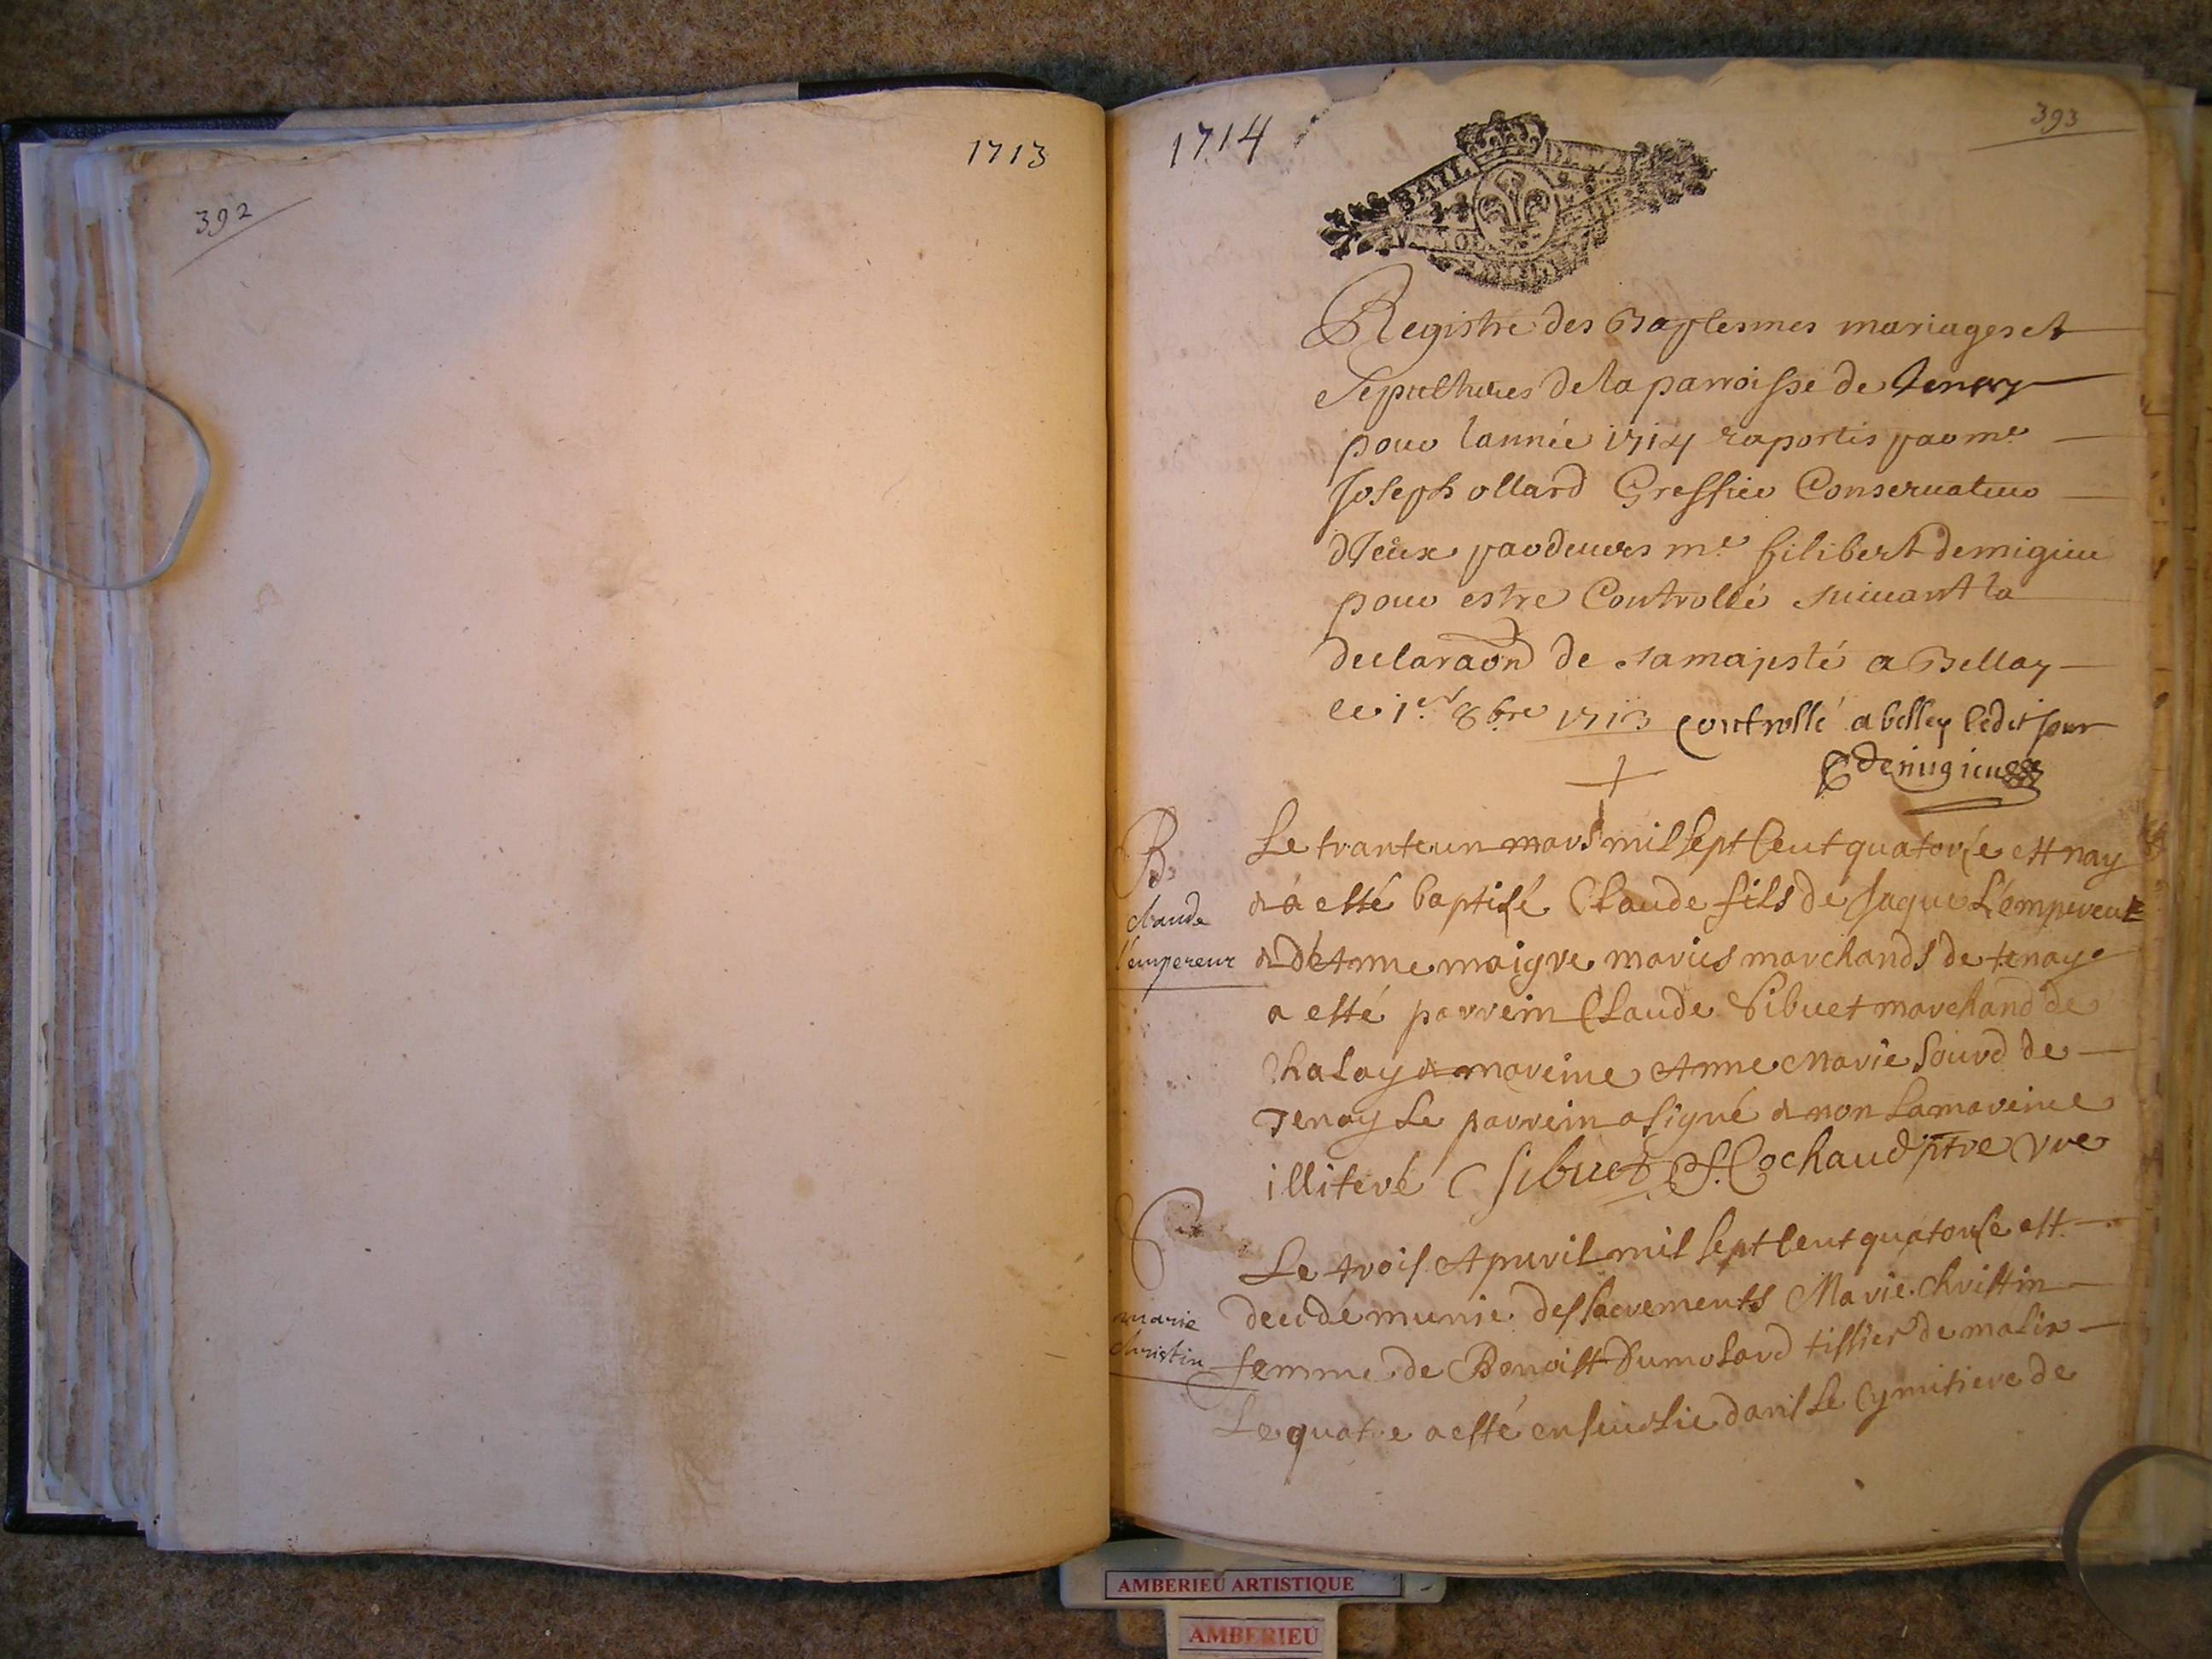 392
1713
1714
393
Registre des Baptesmes mariages et
sepultures de la parroisse de tenay
pour lannée 1714 raportés par me
Joseph ollard Greffier Conservateur
d'Iceux pardevers me filibert demigieu
pour estre Controllé suivant la
declaraon de sa majesté a Bellay
le 1er 8bre 1713 controllé a belley ledit jour
demigieu
B
claude
l'empereur
Le trante un mars mil sept Cent quatorze est nay
& a esté baptisé Claude fils de Jaque L'empereur
& de Anne maigre mariés marchands de tenay
a esté parrein Claude Sibuet marchand de
Chaley & mareine Anne Marie Sourd de
Tenay Le parrein a signé & non La mareine
illiteré C Sibuet Cochaud ptre vre
marie
christin
Le trois Apuril mil sept Cent quatorse est
decedé munie des sacrements Marie Christin
femme de Benoist Dumolard tissier de malix
Le quatre a esté ensevelie dans Le Cymitiere de
AMBERIEU ARTISTIQUE
AMBERIEU